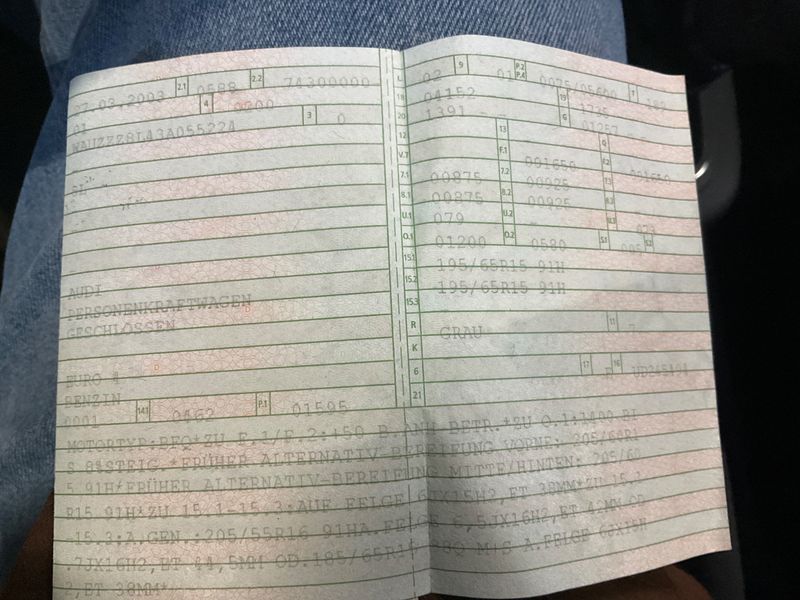 27.03.2003 2.1 0588 2.2 74300000
01 4 0200 3 0
WAUZZZ8L43A055224
-
AUDI
PERSONENKRAFTWAGEN
GESCHLOSSEN
EURO 4
BENZIN
0001 14.1 0462 P.1 01595
L 02 9 01 P.2 P.4 0075/05600 T 182
18 04152 19 1735
20 1391 - G 01257 -
12 13 Q
V.7 F.1 001650 F.2 001650
7.1 00875 7.2 00925 7.3
8.1 00875 8.2 00925 8.3
U.1 079 U.2 U.3
O.1 01200 O.2 0580 S.1 005 S.2
15.1 195/65R15 91H
15.2 195/65R15 91H
15.3
R GRAU 11 -
K
6 17 16
21
MOTORTYP:BFQ*ZU F.1/F.2:+50 B.ANH BETR.*ZU O.1:1400 BI
S 8%STEIG.*FRÜHER ALTERNATIV-BEREIFUNG VORNE: 205/60R1
5 91H*FRÜHER ALTERNATIV-BEREIFUNG MITTE/HINTEN: 205/60
R15 91H*ZU 15.1-15.3:AUF FELGE 6JX15H2,ET 38MM*ZU 15.1
-15.3:A.GEN.:205/55R16 91HA.FELGE 6,5JX16H2,ET 42MM OD
.7JX16H2,ET 44,5MM OD.185/65R15 88Q M+S A.FELGE 6JX15H
2,ET 38MM*